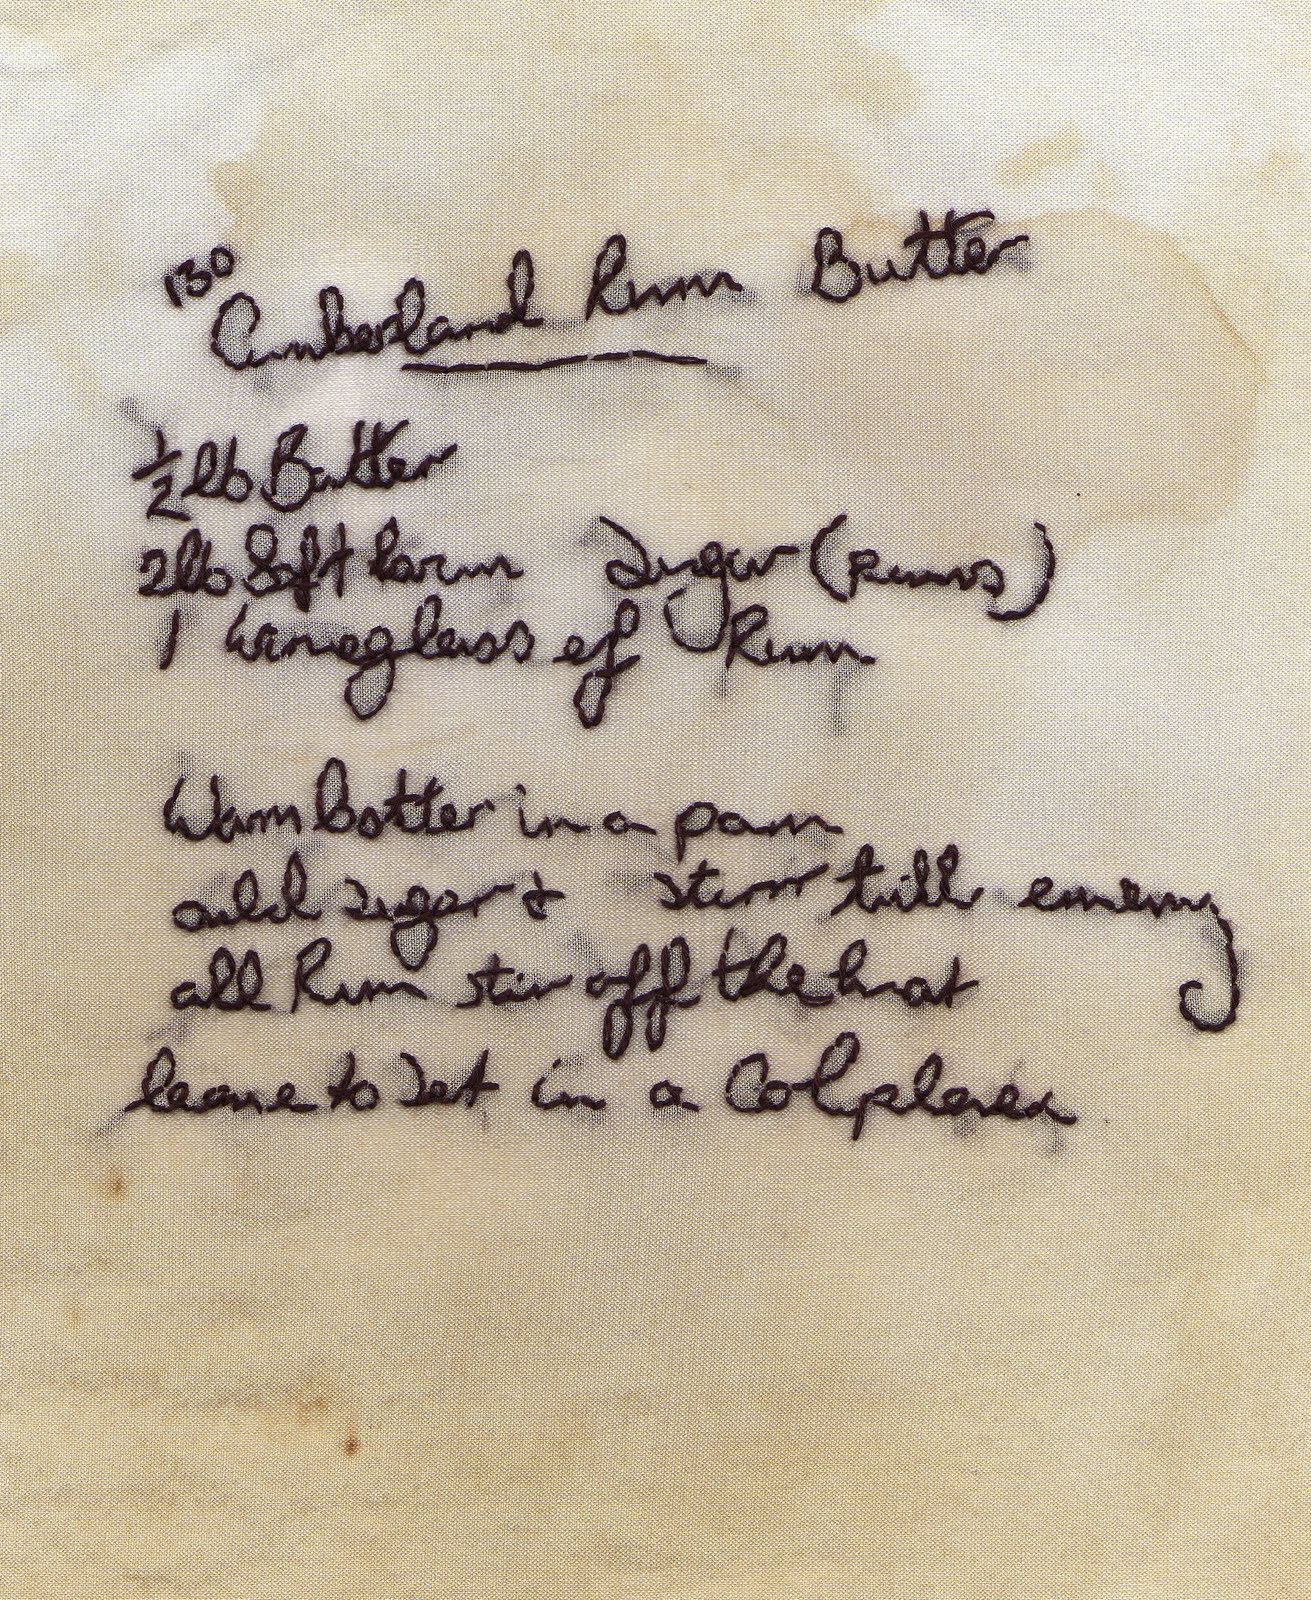 130
Cumberland Rum Butter
½ lb Butter
2 lb Soft brown Sugar ( )
1 Wineglass of Rum
Warm butter in a pan
add sugar & stirr till creamy
all Rum stir off the heat
leave to set in a